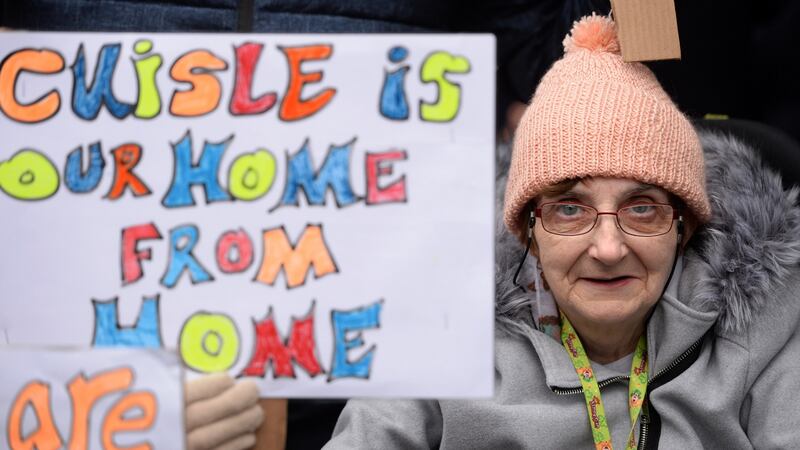 CUiSLE iS
OUR HOME
FROM
HOME
are